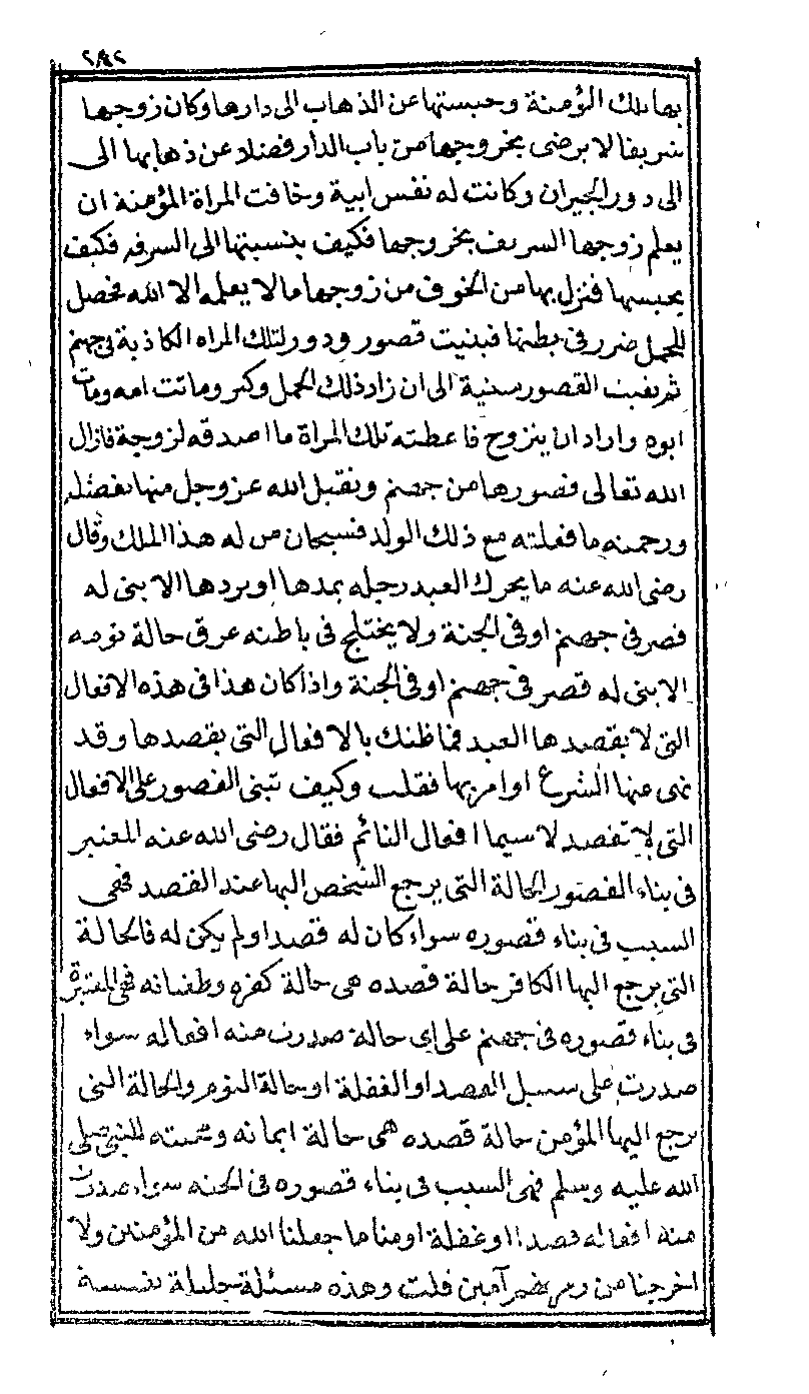 ٢٩٢
بها تلك المؤمنة وحبستها عن الذهاب الى دارها وكان زوجها
شريفا لا يرضى بخروجها من باب الدار فضلا عن ذهابها الى
الى دور الجيران وكانت له نفس ابية وخافت المراة المؤمنة ان
يعلم زوجها الشريف بخروجها فكيف بنسبتها الى السرقه فكيف
بحبسها فنزل بها من الخوف من زوجها ما لا يعلمه الا الله فحصل
للحمل ضرر فى بطنها فبنيت قصور ودور لتلك المراه الكاذبة فى جهنم
ثم بقيت القصور سنية الى ان زاد ذلك الحمل وكبر وماتت امه ومات
ابوه واراد ان يتزوج فاعطته تلك المراة ما اصدقه لزوجة فازال
الله تعالى قصورها من جهنم وتقبل الله عز وجل منها بفضله
ورحمته ما فعلته مع ذلك الولد فسبحان من له هذا الملك وقال
رضى الله عنه ما يحرك العبد رجله بمدها او بردها الا بنى له
قصر فى جهنم او فى الجنة ولا يختلج فى باطنه عرق حالة نومه
الا بنى له قصر فى جهنم او فى الجنة واذا كان هذا فى هذه الافعال
التى لا يقصدها العبد فما ظنك بالافعال التى يقصدها وقد
نهى عنها الشرع او امر بها فقلت وكيف تبنى القصور على الافعال
التى لا تقصد لا سيما افعال النائم فقال رضى الله عنه المعتبر
فى بناء القصور الحالة التى يرجع الشخص اليها عند القصد فهى
السبب فى بناء قصوره سواء كان له قصد او لم يكن له فالحالة
التى يرجع اليها الكافر حالة قصده هى حالة كفره وطغيانه فهى المعتبرة
فى بناء قصوره فى جهنم على اى حالة صدرت منه افعاله سواء
صدرت على سبيل القصد او الغفلة او حالة النوم والحالة التى
يرجع اليها المؤمن حالة قصده هى حالة ايمانه ومحبته للنبى صلى
الله عليه وسلم فهى السبب فى بناء قصوره فى الجنه سواء صدرت
منه افعاله قصدا او غفلة او مناما جعلنا الله من المؤمنين ولا
اخرجنا من زمرتهم آمين قلت وهذه مسئلة جليلة نفيسة